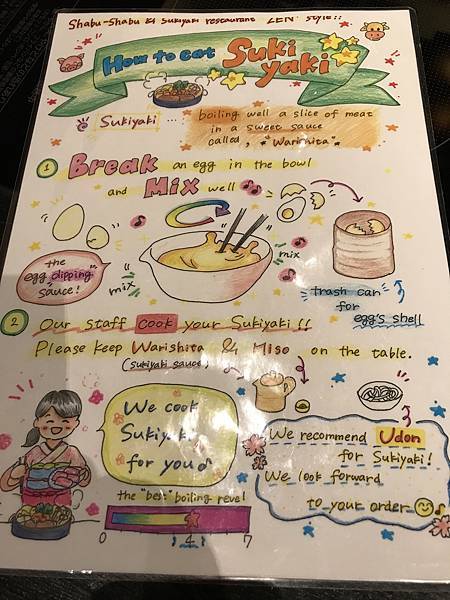 Shabu-Shabu & Sukiyaki restaurant "ZEN" style!!
How to eat Suki
yaki
Sukiyaki ...
boiling well a slice of meat
in a sweet sauce
called, "Warishita"
1 Break an egg in the bowl
and Mix well
the
egg dipping
sauce!
mix
mix
trash can
for
egg's shell
2 Our staff cook your Sukiyaki!!
Please keep Warishita & Miso on the table.
(sukiyaki sauce)
We cook
Sukiyaki
for you
We recommend Udon
for Sukiyaki!
We look forward
to your order
the "best" boiling revel
0 4 7